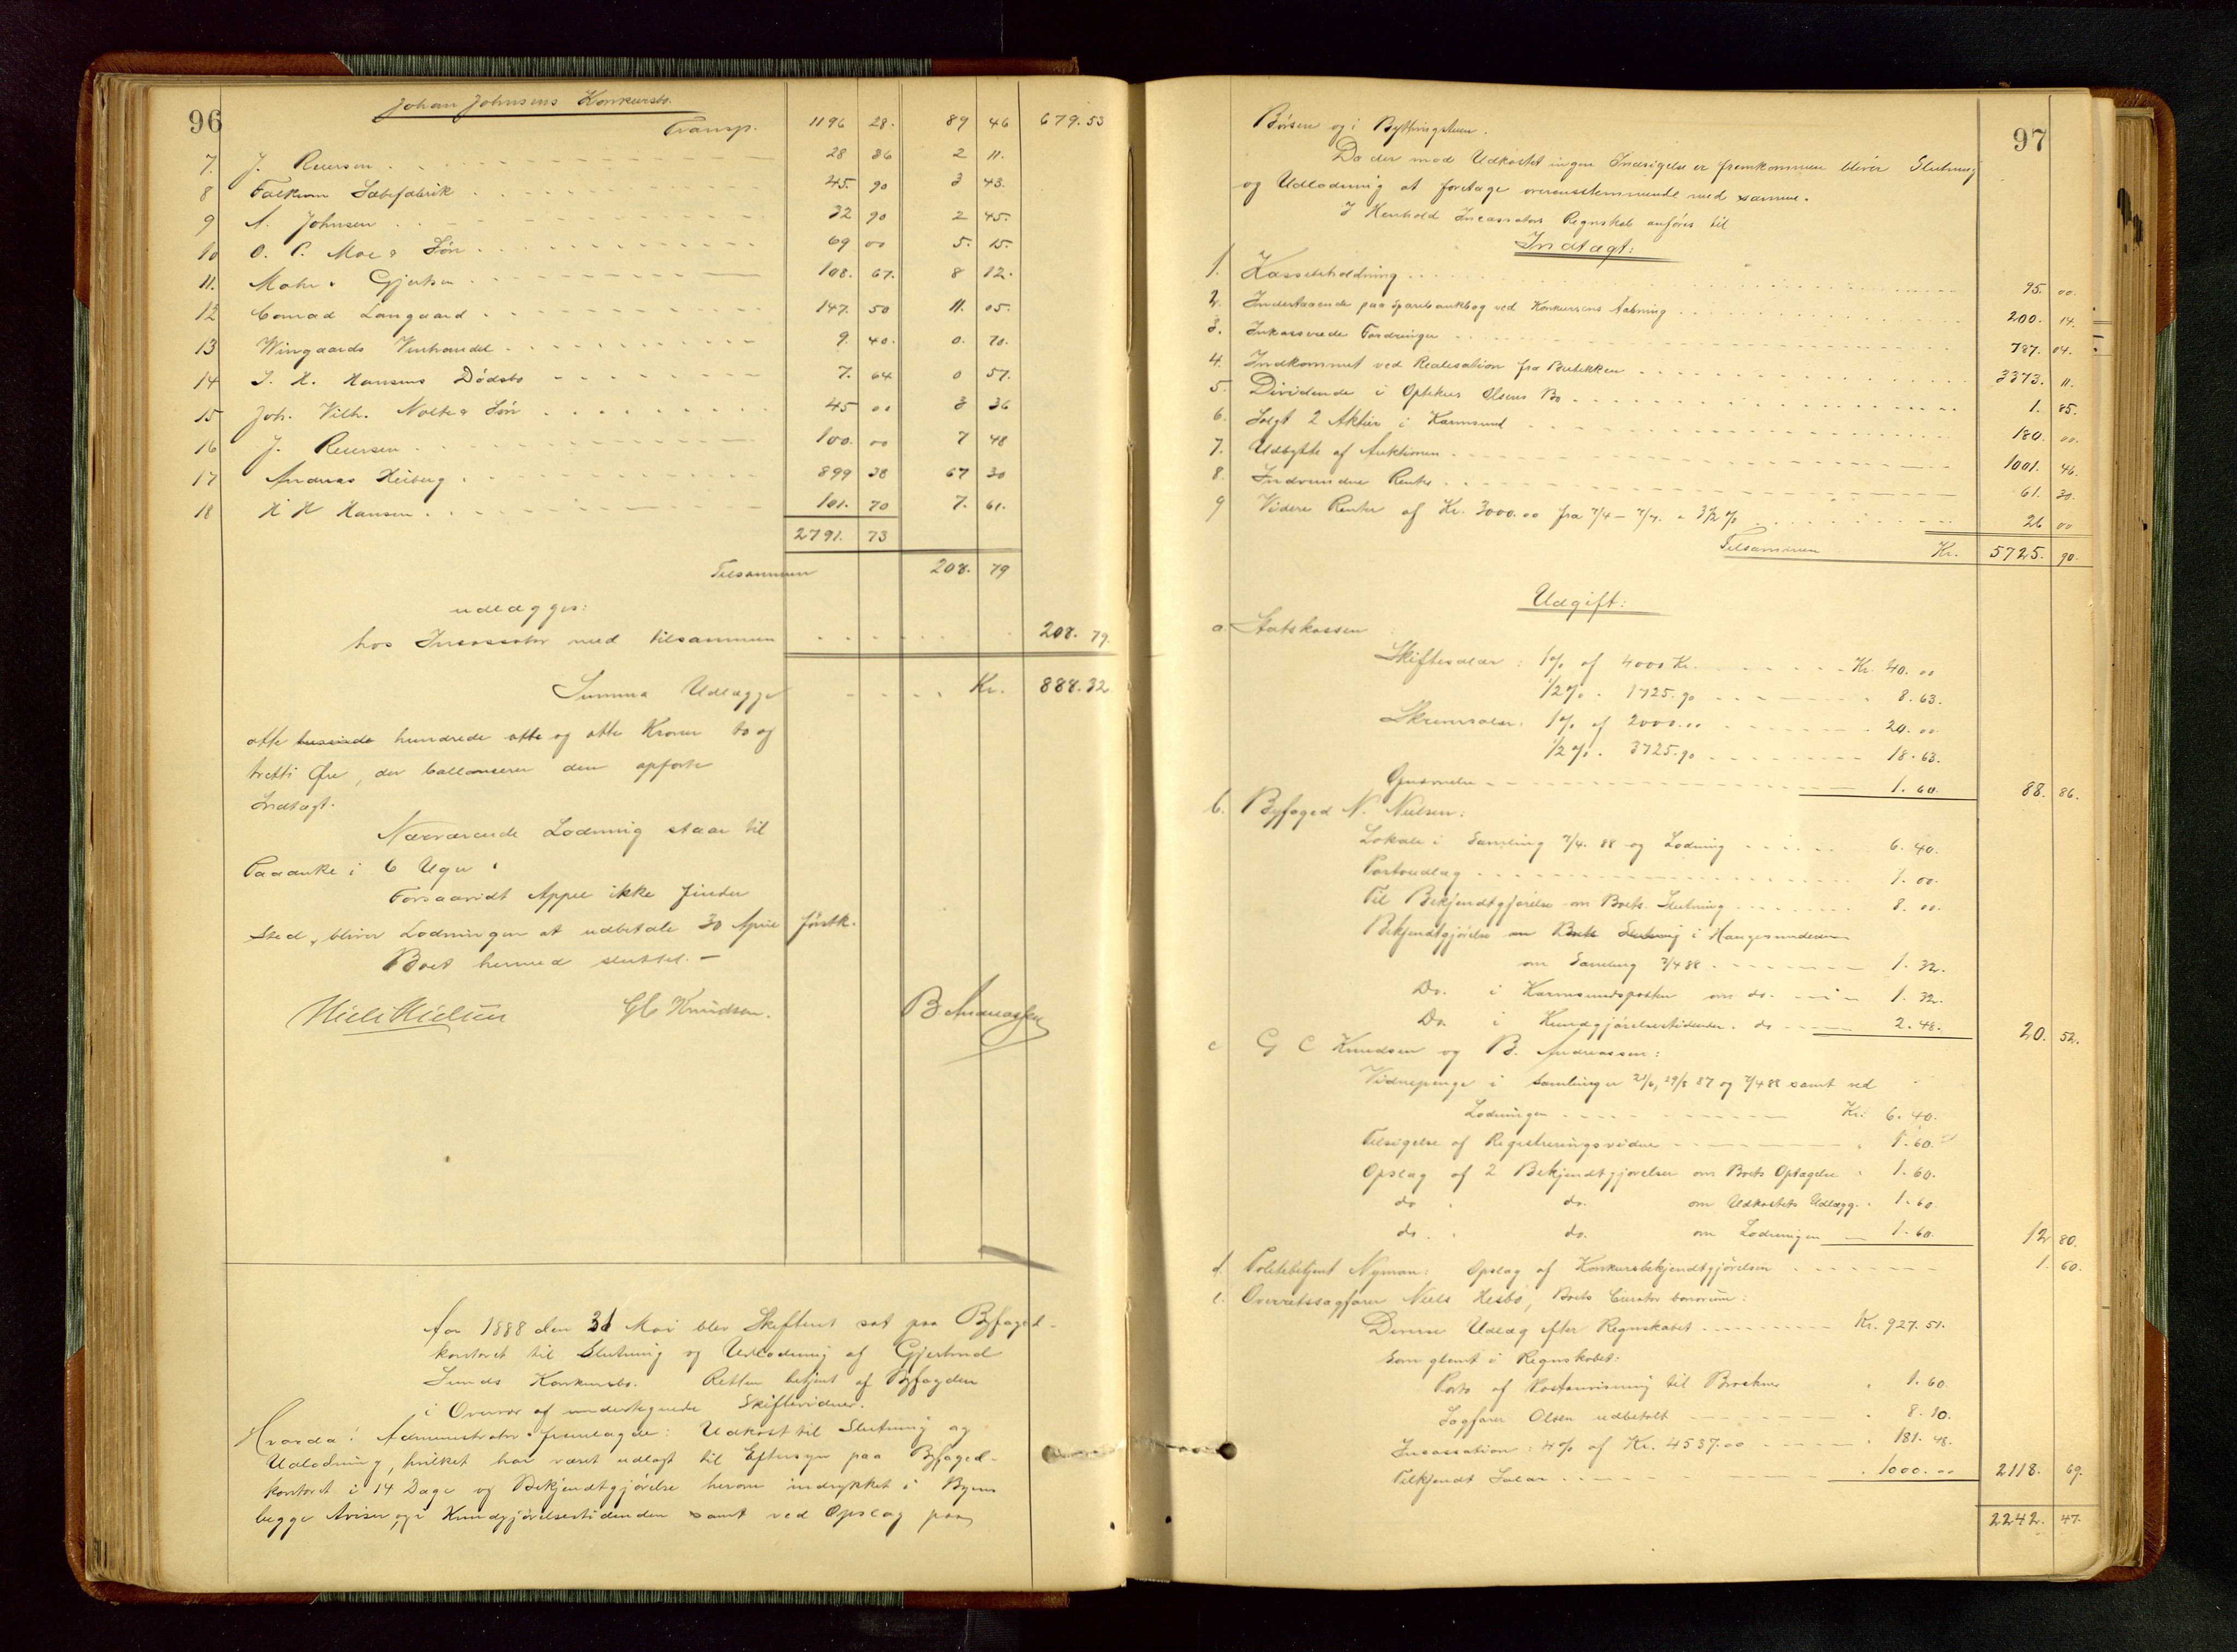 96
Johan Johnsens Konkursbo.
Transp. 1196 28. 89 46 679.53
7. J. Reiersen 28 86 2 11.
8 Falkum Sæbefabrik 45. 90 3 43.
9 A. Johnsen 32 90 2 45.
10 O. P. Moe & Søn 69 00 5. 15.
11. Mohr & Gjertsen 108. 67. 8 12.
12 Conrad Langaard 147. 50 11. 05.
13 Wingaards Vinhandel 9. 40. 0. 70.
14 I. H. Hansens Dødsbo 7. 64 0 57.
15 Joh. Vilh. Nolte & Søn 45 00 3 36
16 J. Reiersen 100. 00 7 48
17 Andreas Heiberg 899 38 67 30
18 H H Hansen 101. 70 7. 61.
2791. 73
Tilsammen 208. 79
udlægges:
hos Incassator med tilsammen 208. 79.
Summa Udlægge Kr. 888.32
otte tusinde hundrede otte og otte Kroner to og
tretti Øre, der ballanserer den opførte
Indtægt.
Nærværende Lodning staar til
Paaanke i 6 Uger.
Forsaavidt Appel ikke finder
Sted, bliver Lodningen at udbetale 30 April førstk.
Boet hermed sluttet. –
Niels Nielsen GC Knudsen. B Andreassen
Aar 1888 den 31 Mai blev Skifteret sat paa Byfoged-
kontoret til Slutning og Udlodning af Gjertrud
Lunds Konkursbo. Retten betjent af Byfogden
i Overvær af undertegnede Skiftevidner.
Hvorda: Administrator fremlagde: Udkast til Slutning og
Udlodning, hvilket har været udlagt til Eftersyn paa Byfoged-
kontoret i 14 Dage og Bekjendtgjørelse herom indrykket i Byens
begge Aviser, og i Kundgjørelsestidenden samt ved Opslag paa
97
Børsen og i Bythingstuen.
Da der mod Udkastet ingen Indsigelse er fremkommen bliver Slutning
og Udlodning at foretage overensstemmende med samme.
I Henhold Incassators Regnskab anføres til
Indtægt:
1. Kassebeholdning 95. 00.
2. Indestaaende paa Sparebankbog ved Konkursens Aabning 200. 14.
3. Inkasserede Fordringer 787. 04.
4. Indkommet ved Realisation fra Butikken 3373. 11.
5. Dividende i Optikus Olsens Bo 1. 85.
6. Solgt 2 Aktier i Karmsund 180. 00.
7. Udbytte af Auktionen 1001. 46.
8. Indvundne Renter 61. 30.
9 Videre Renter af Kr. 3000.00 fra 7/4 – 7/7. a 3½ % 26 00
Tilsammen Kr. 5725. 90.
Udgift:
a. Statskassen
Skiftesalær: 1% af 4000 Kr. Kr. 40. 00
½ % . 1725.90 8. 63.
Skriversalær. 1% af 2000.00 20. 00
½ % . 3725.90 18. 63.
Gjensvelse 1. 60. 88. 86.
b. Byfoged N. Nielsen:
Lokale i Samling 7/4. 88 og Lodning 6. 40.
Portoudlæg 1. 00.
Til Bekjendtgjørelse om Boets Slutning 8. 00.
Bekjendtgjørelse om Boets Slutning i Haugesunderen
om Samling 7/4 88 1. 32.
Do. i Karmsundsposten om do. 1. 32.
Do. i Kundgjørelsestidenden do 2. 48. 20. 52.
c G C Knudsen og B. Andreassen:
Vidnepenge i Samlinger 21/6, 29/8 87 og 7/4 88 samt ved
Lodningen Kr. 6. 40.
Tilsigelse af Registreringsvidne 1. 60.
Opslag af 2 Bekjendtgjørelser om Boets Optagelse 1. 60.
do do. om Udkastets Udlægg. 1. 60.
do. do. om Lodningen 1. 60. 12 80.
d. Politibetjent Nyman: Opslag af Konkursbekjendtgjørelsen 1. 60.
e. Overretssagfører Niels Hesbø, Boets Curator bonorum:
Diverse Udlæg efter Regnskabet Kr. 927. 51.
Som glemt i Regnskabet:
Porto af Postanvisning til 1. 60
Sagfører Olsen udbetalt 8. 10.
Incassation: 4% af Kr. 4537.00 181. 48.
Tilkjendt Salær 1000. 00 2118. 69.
2242. 47.